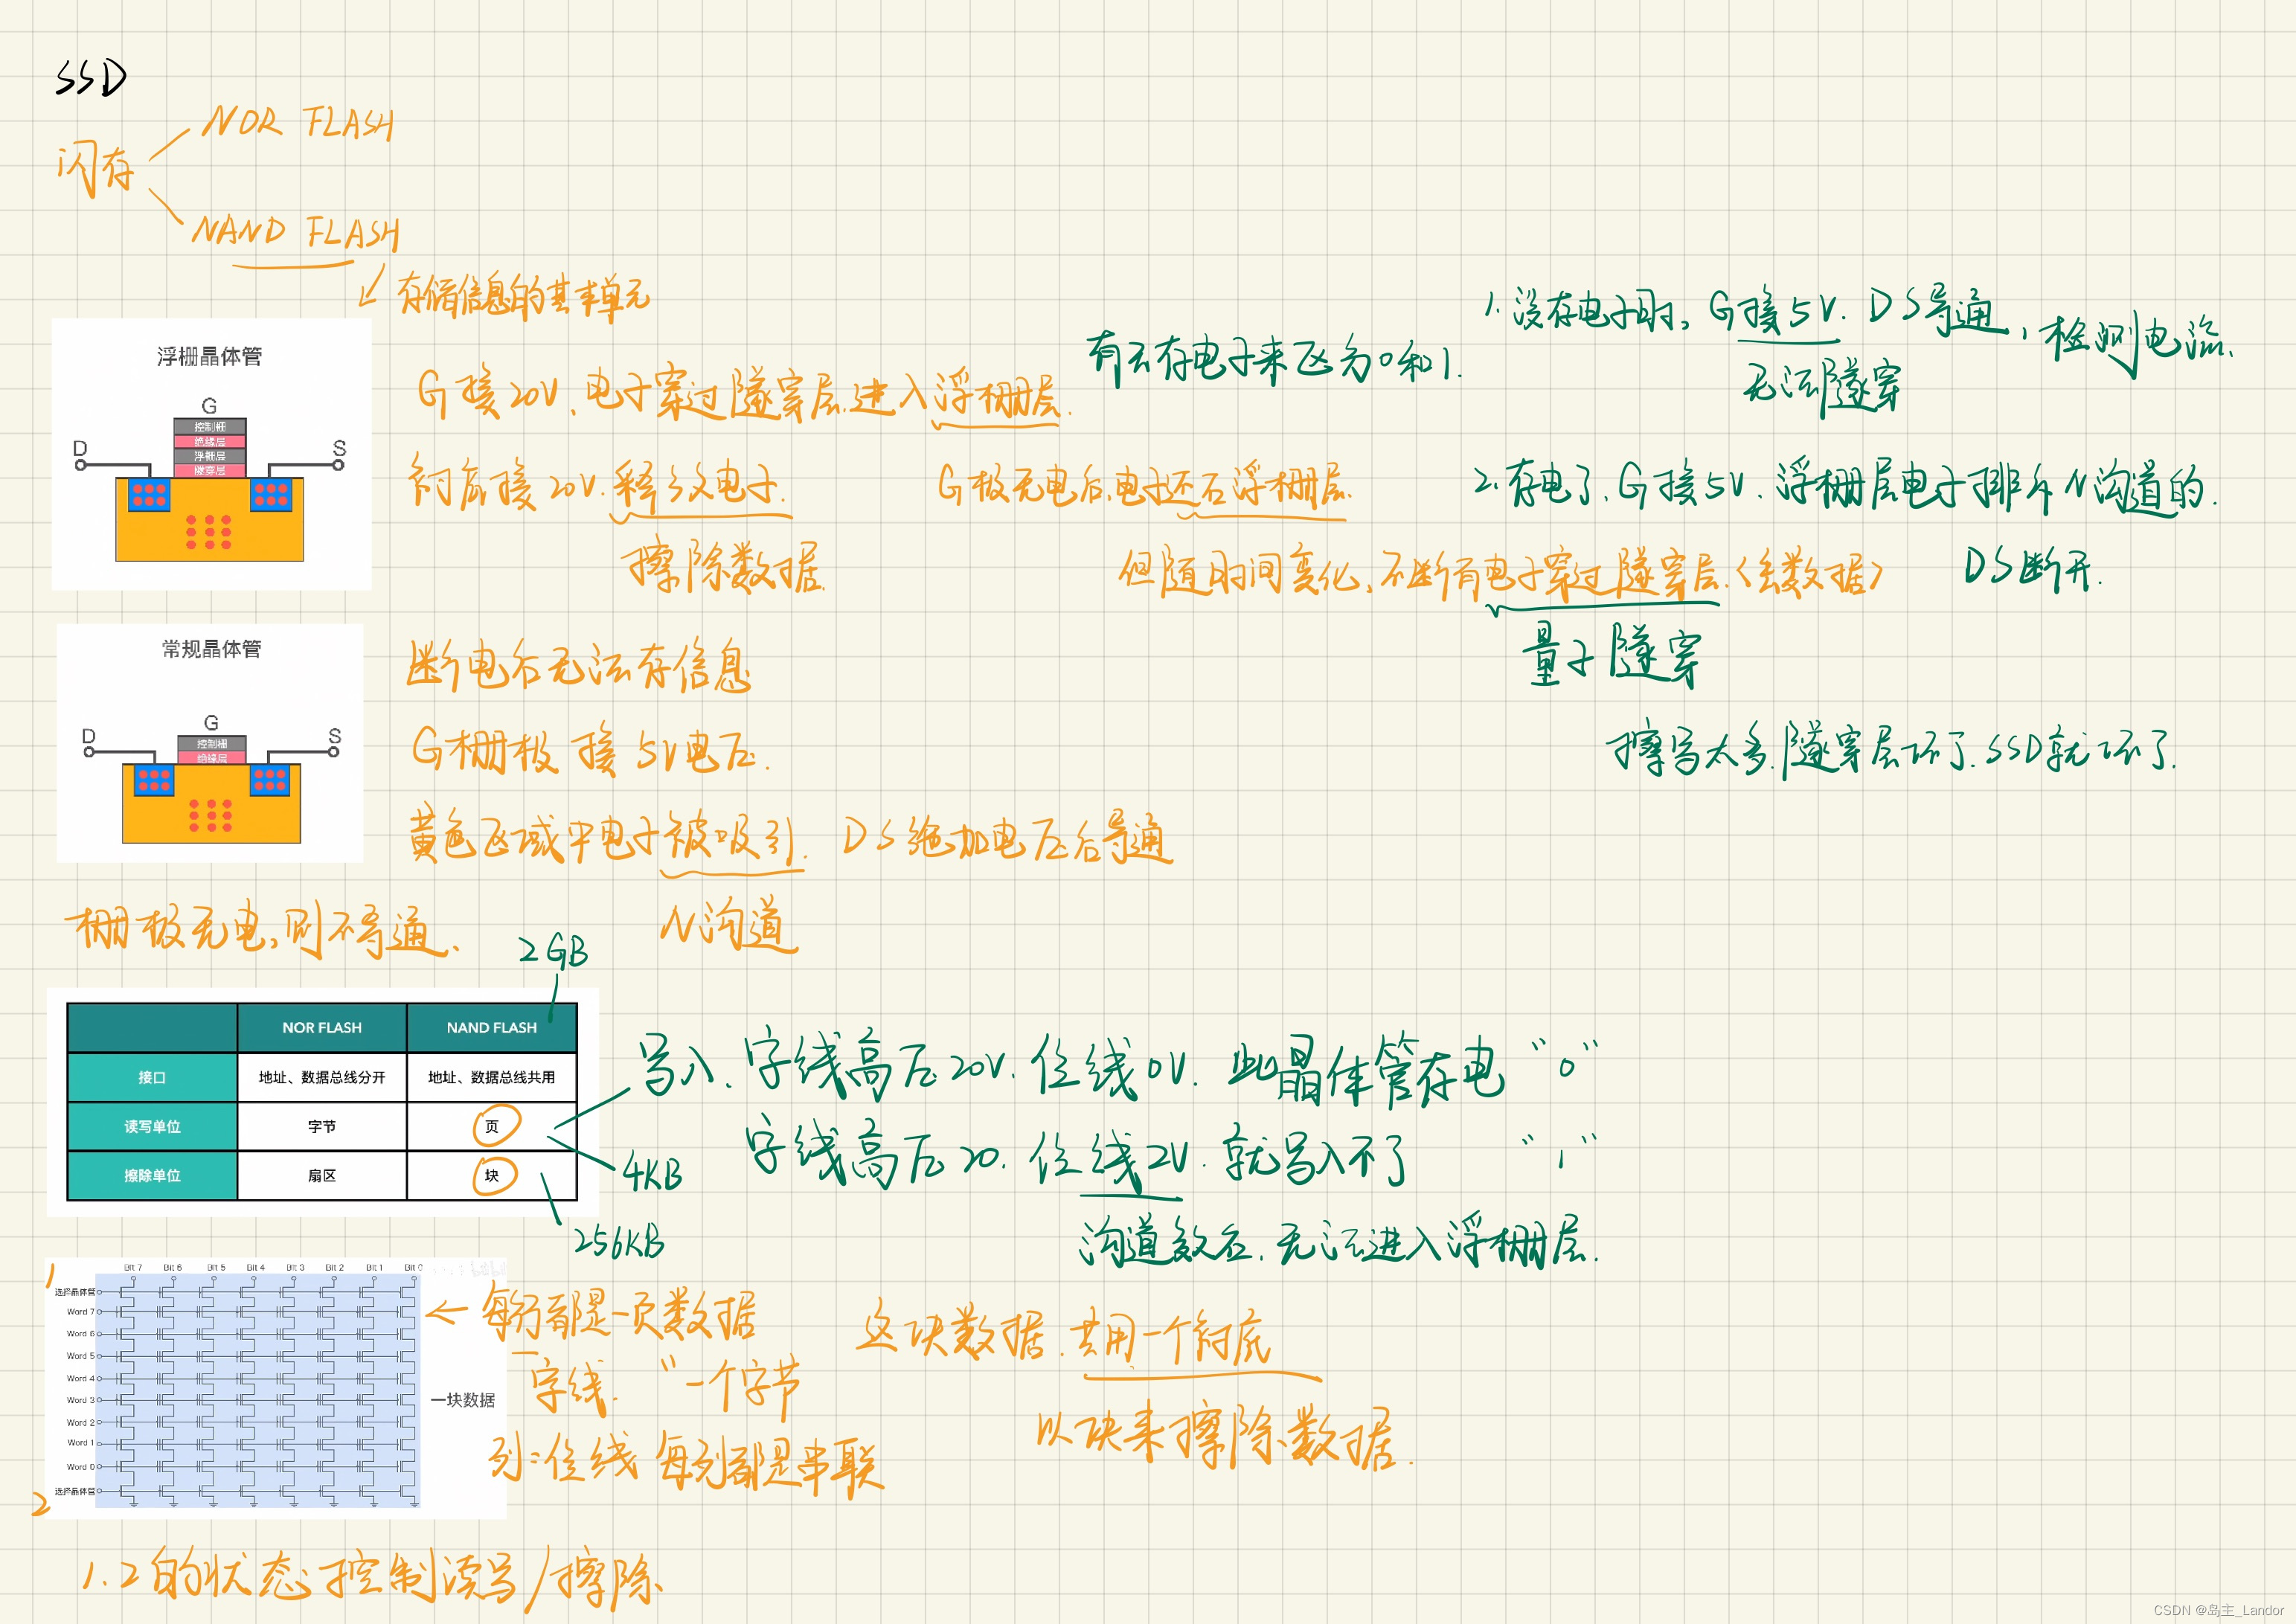 SSD
闪存
NOR FLASH
NAND FLASH
存储信息的基本单元
浮栅晶体管
G
控制栅
绝缘层
浮栅层
隧穿层
D
S
G接20V、电子穿过隧穿层.进入浮栅层.
衬底接20V.释放电子.
擦除数据.
G极无电后,电子还在浮栅层.
但随时间变化,不断有电子穿过隧穿层.<丢数据>
量子隧穿
有无存电子来区分0和1.
1.没存电子时,G接5V. DS导通,检测电流.
无法隧穿
2.存电了,G接5V.浮栅层电子排斥N沟道的.
DS断开.
擦写太多.隧穿层坏了.SSD就坏了.
常规晶体管
G
控制栅
绝缘层
D
S
断电后无法存信息
G栅极接5V电压.
黄色区域中电子被吸引. DS 加电压后导通
N沟道
栅极无电,则不导通.
2GB
NOR FLASH NAND FLASH
接口 地址、数据总线分开 地址、数据总线共用
读写单位 字节 页
擦除单位 扇区 块
4KB
256KB
写入、字线高压20V.位线0V.此晶体管存电 "0"
字线高压20.位线2V.就写入不了 "1"
沟道 无法进入浮栅层.
1
2
Bit 7 Bit 6 Bit 5 Bit 4 Bit 3 Bit 2 Bit 1 Bit 0
选择晶体管
Word 7
Word 6
Word 5
Word 4
Word 3
Word 2
Word 1
Word 0
选择晶体管
一块数据
每行都是一页数据
字线. "一个字节
列:位线 每列都是串联
这块数据.共用一个衬底
以块来擦除数据.
1.2的状态控制读写/擦除
CSDN @岛主_Landor